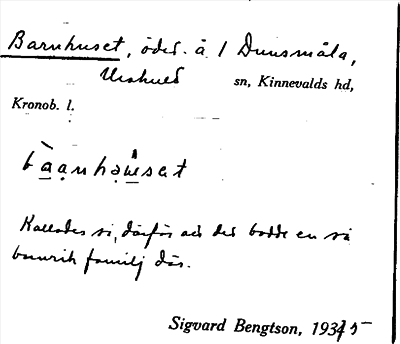 Barnhuset, öde. å 1 Dunsmåla,
Urshult sn, Kinnevalds hd,
Kronob. l.
Kallades så, därför att det bodde en så
barnrik familj där.
Sigvard Bengtson, 1935